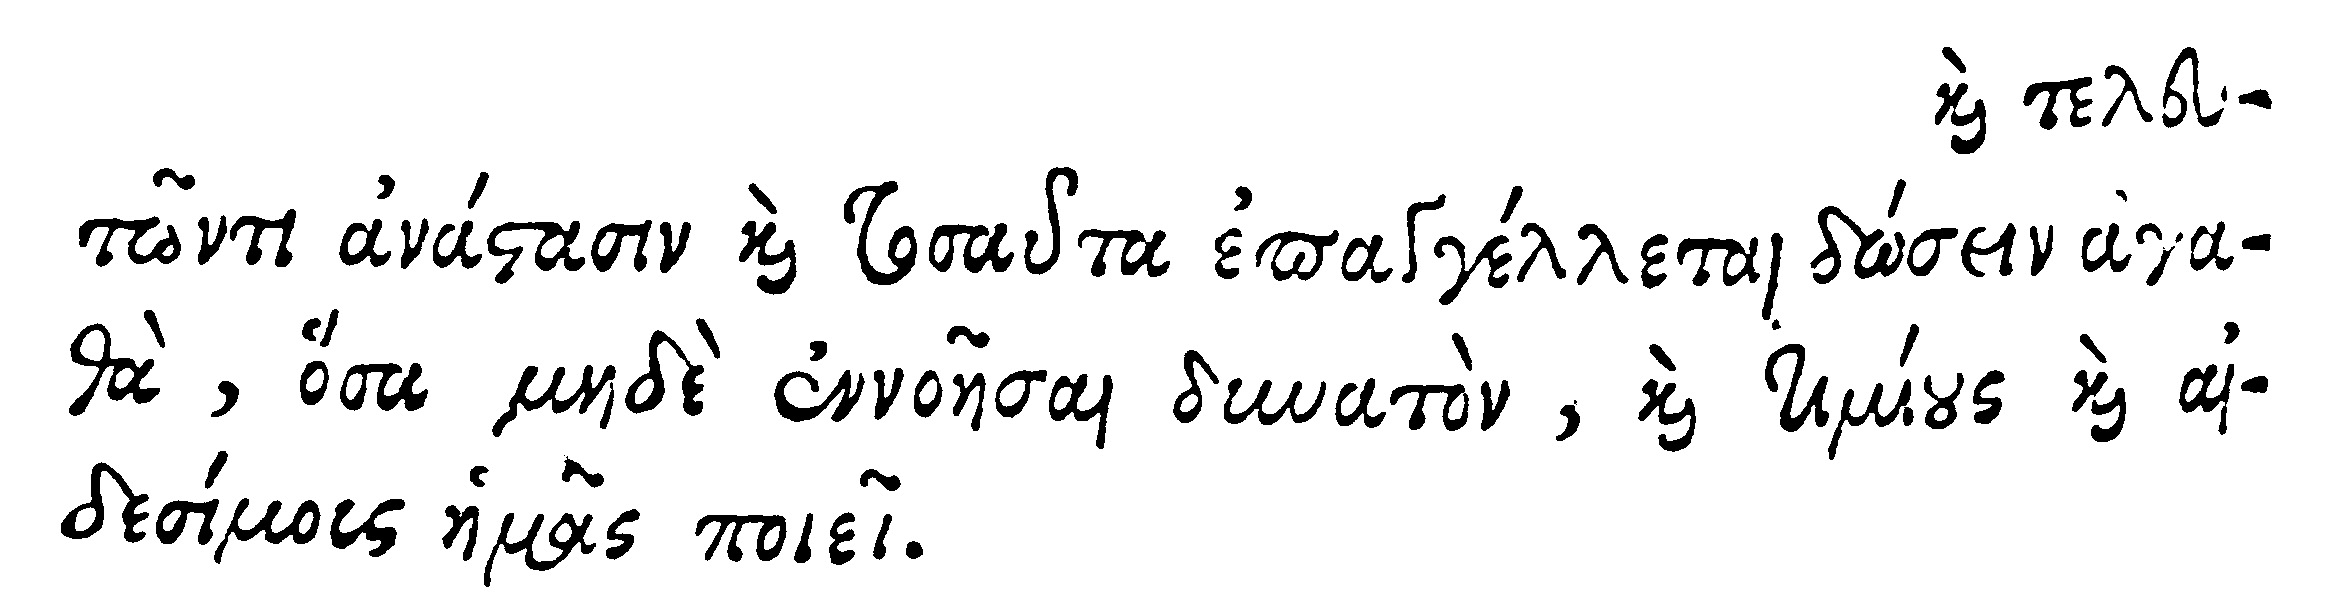 καὶ τελευ-
τῶντι ἀνάστασιν καὶ τοσαῦτα ἐπαγγέλλεται δώσειν ἀγα-
θὰ, ὅσα μηδὲ ἐννοῆσαι δυνατὸν, καὶ τιμίους καὶ αἰ-
δεσίμοις ἡμᾶς ποιεῖ.